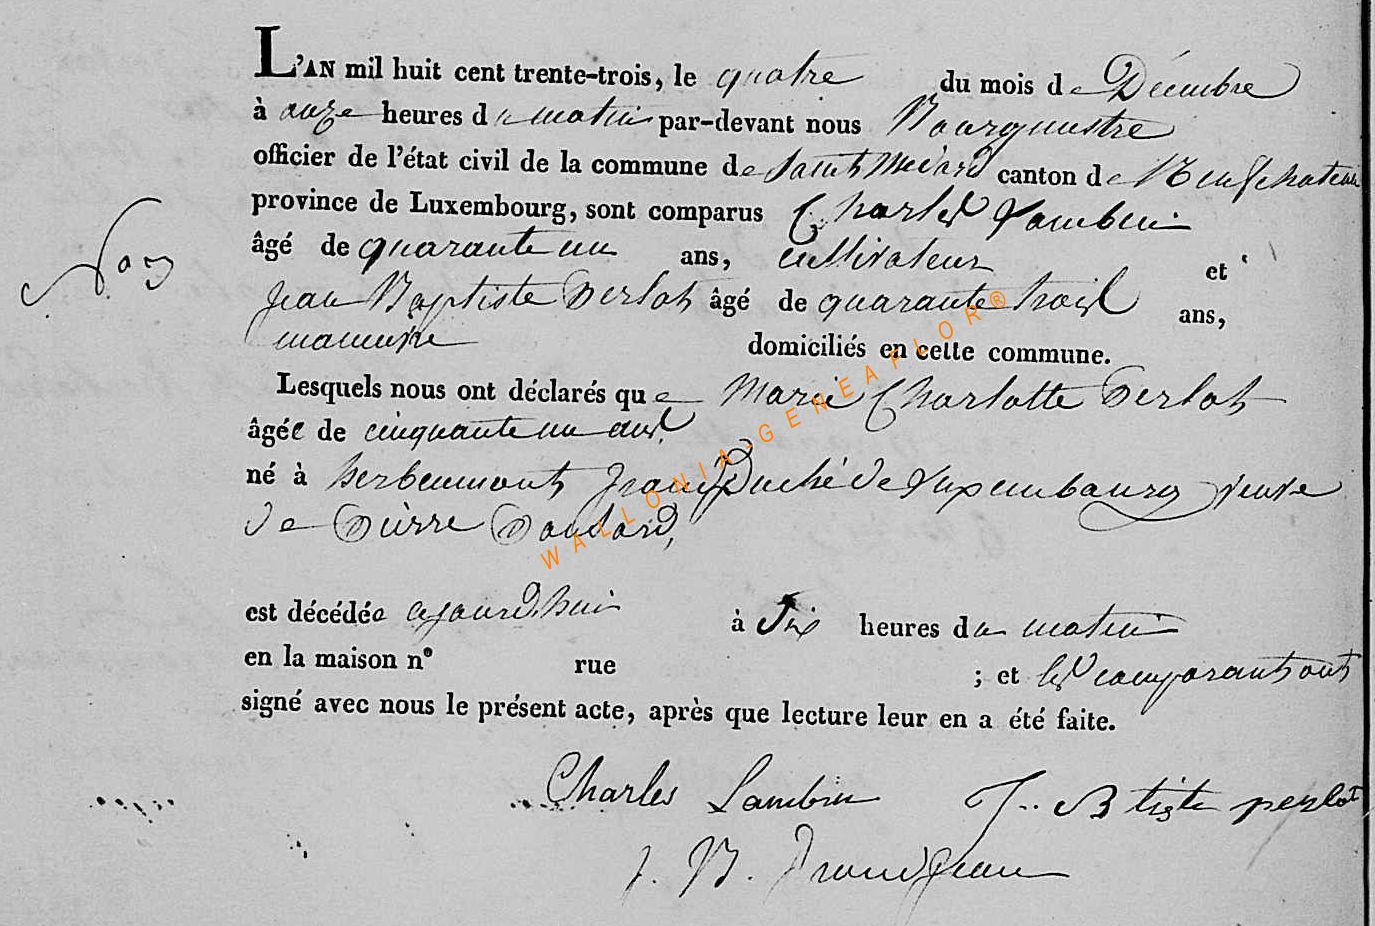 L'AN mil huit cent trente-trois, le quatre du mois de Décembre
à onze heures du matin par-devant nous Bourgmestre
officier de l'état civil de la commune de Saint Médard canton de Neufchateau
province de Luxembourg, sont comparus Charles Lambin
âgé de quarante un ans, cultivateur et
Jean Baptiste Perlot âgé de quarante trois ans,
domiciliés en cette commune.
Lesquels nous ont déclarés que Marie Charlotte Perlot
âgée de cinquante un ans,
né à herbeumont Grand Duché de Luxembourg veuve
de Pierre
est décédée aujourd'hui à Six heures du matin
en la maison n° rue ; et les comparants ont
signé avec nous le présent acte, après que lecture leur en a été faite.
Charles Lambin J.. Btiste perlot
J. B. Grandjean
WALLONIA-GENEAFLOR®